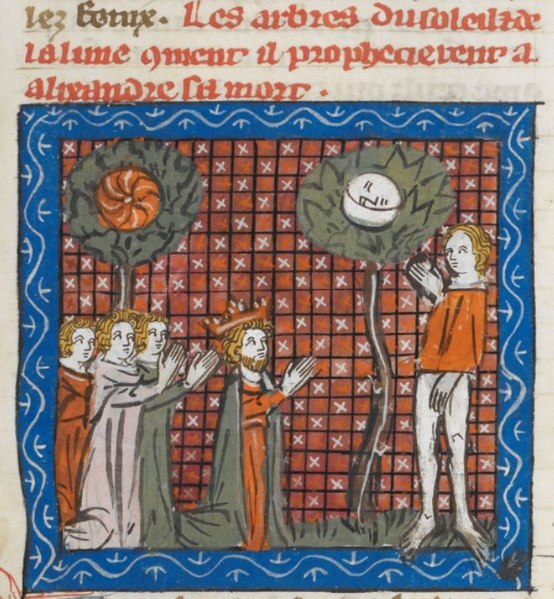 lez bouix. Les arbres du soleil ⁊ de
la lune ꝯment il prophecierent a
alixandre sa mort.